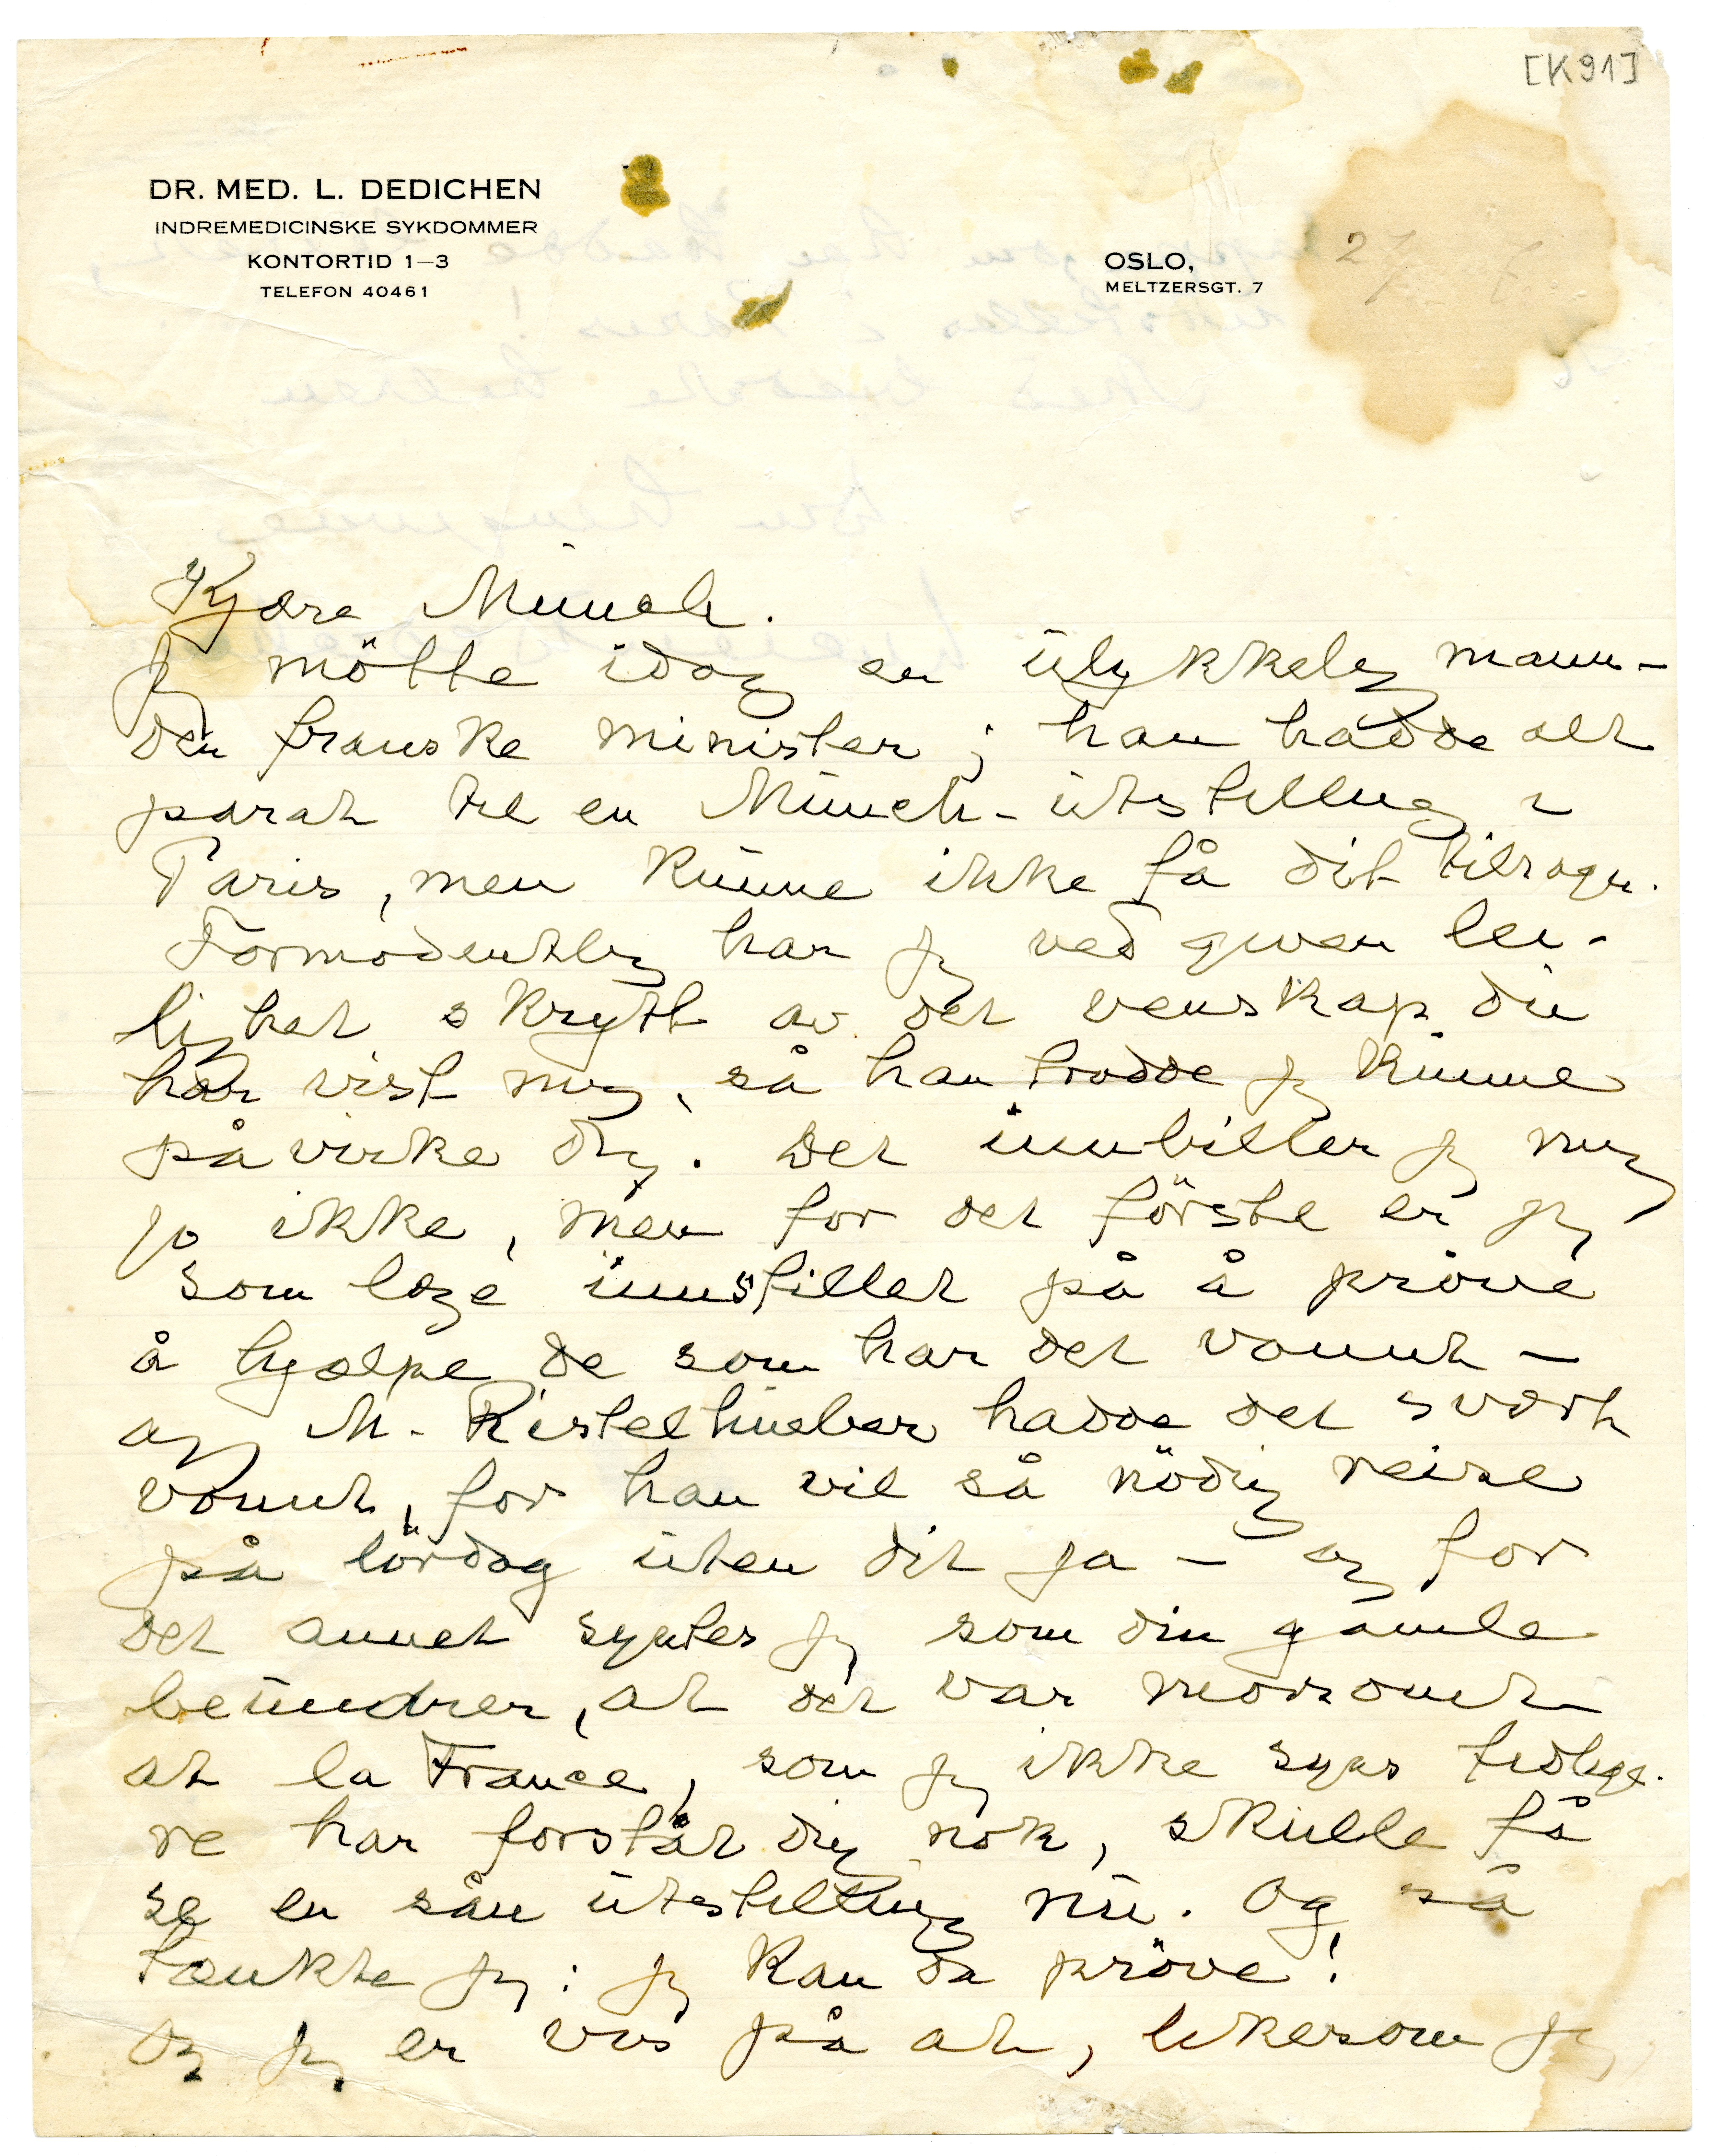 [K91]
DR. MED. L. DEDICHEN
INDREMEDICINSKE SYKDOMMER
KONTORTID 1—3
TELEFON 40461
OSLO,
MELTZERSGT. 7
27
Kjære Munch.
Jeg mötte idag en ulykkelig mann –
den franske minister; han hadde alt
parat til en Munch-utstilling i
Paris, men kunne ikke få dit tilsagn.
Formodentlig har jeg ved given lei-
lighet skrytt av det venskap du
har vist mig, så han trodde jeg kunne
påvirke dig. Det innbiller jeg mig
jo ikke, men for det förste er jeg
som læge innstillet på å pröve
å hjælpe de som har det vonnt –
og M. Ristelhueber hadde det svært
vonnt, for han vil så nödig reise
på lördag uten dit ja – og for
det annet syntes jeg som din gamle
beundrer, at det var morsomt
at la France, som jeg ikke syns tidlige-
re har forståt dig nok, skulle få
se en sån utstilling nu. Og så
tænkte jeg: jeg kan da pröve!
Og jeg er viss på at, likesom jeg